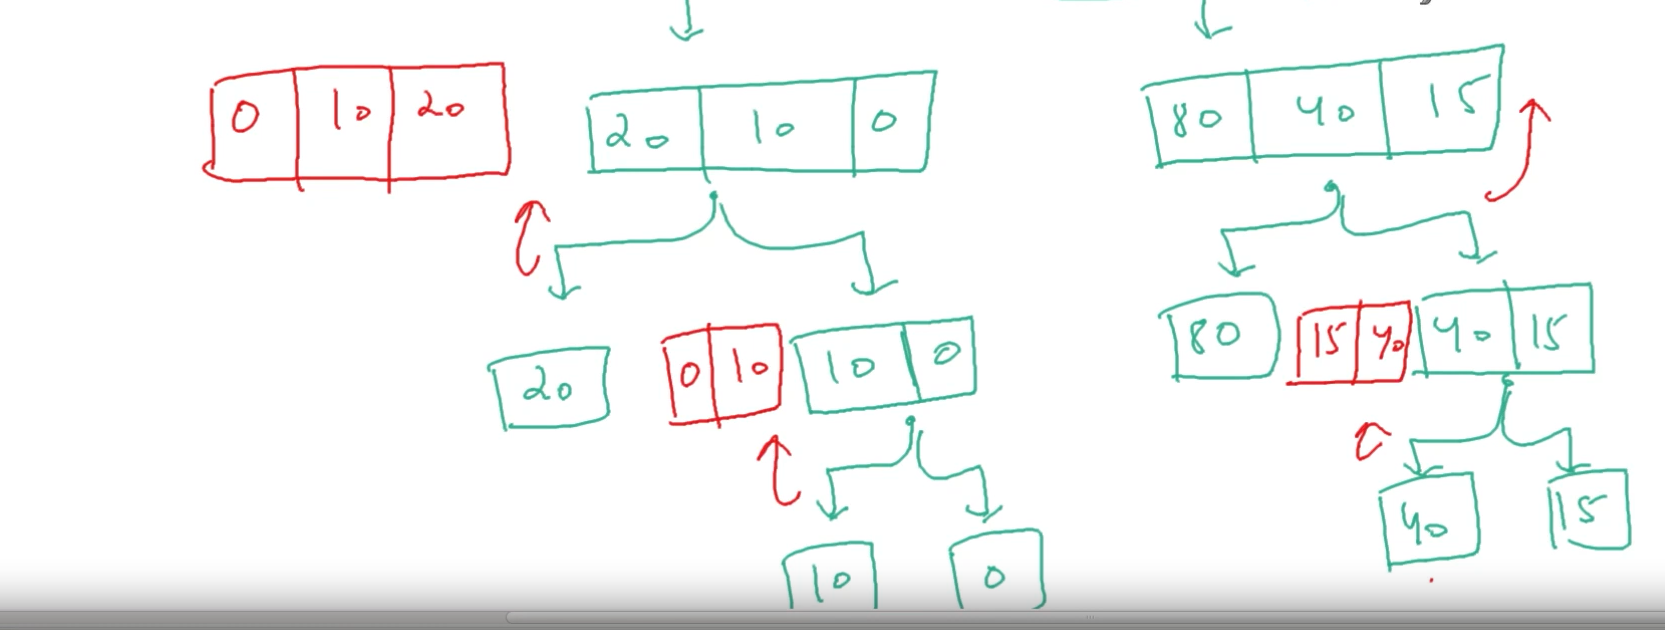 0 10 20
20 10 0
80 40 15
20
0 10
10 0
80
15 40
40 15
10
0
40
15